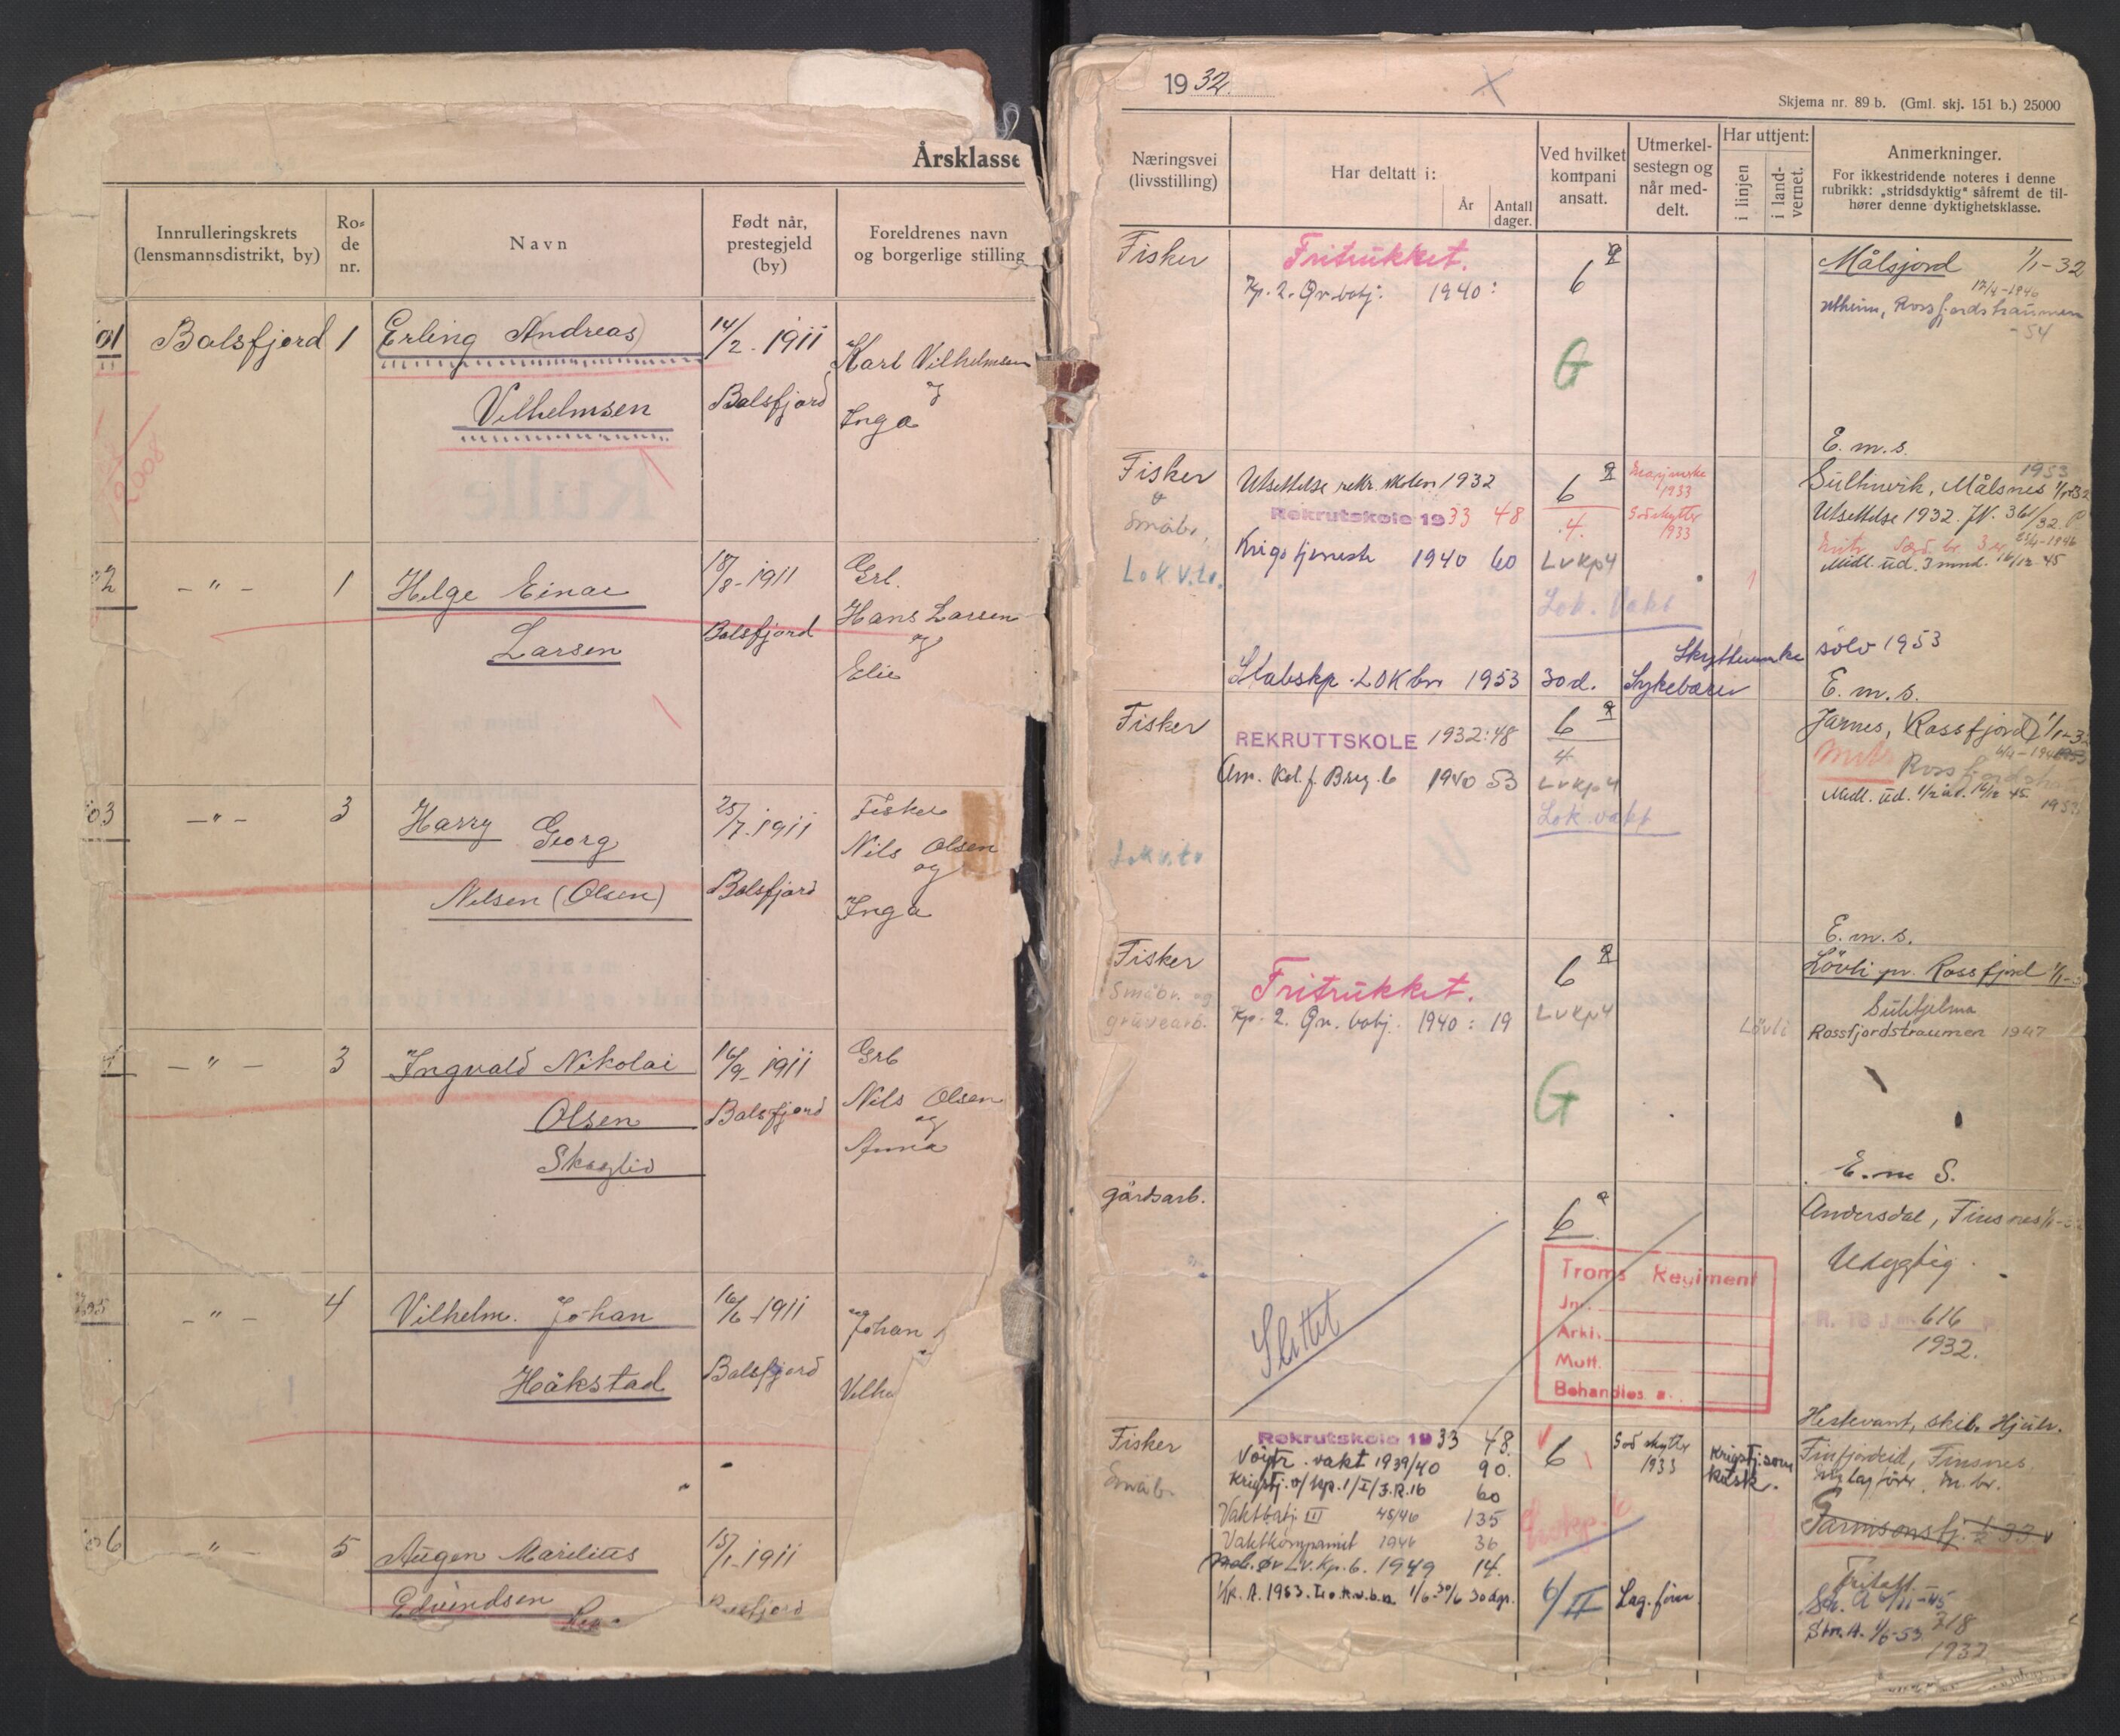 Årsklasse
Innrulleringskrets
(lensmannsdistrikt, by)
Ro-
de
nr.
Navn
Født når,
prestegjeld
(by)
Foreldrenes navn
og borgerlige stilling
01 Balsfjord 1 Erling Andreas) 14/2. 1911
Karl Vilhelmsen
Vilhelmsen Balsfjord og
Inga
2008
2 - " - 1 Helge Einar 18/8-1911 Grb.
Hans Larsen
Larsen Balsfjord og
Elie
03 - " - 3 Harry Georg 25/7.1911 Fisker
Nils Olsen
og
Nilsen (Olsen) Balsfjord Inga
- " - 3 Ingvald Nikolai 16/9-1911 Grb
Nils Olsen
Olsen Balsfjord og
Skoglid Anna
- " - 4 Vilhelm. Johan 16/6-1911 Johan
Håkstad Balsfjord Vilhe
6 - " - 5 Augon Marelius 15/1-1911
Edvindsen
1932.
Skjema nr. 89 b. (Gml. skj. 151 b.) 25000
Næringsvei
(livsstilling)
Har deltatt i:
År
Antall
dager.
Ved hvilket
kompani
ansatt.
Utmerkel-
sestegn og
når med-
delt.
Har uttjent:
i linjen
i land-
vernet.
Anmerkninger.
For ikkestridende noteres i denne
rubrikk: „stridsdyktig" såfremt de til-
hører denne dyktighetsklasse.
Fisker Fritrukket. 6 Målsjord 1/1-32
Kp. 2. Gr. batj. 1940: 12/4-1946
Rossfjordstraumen
-54
G
E. m. s.
1953
Fisker Utsettelse rekr. skolen 1932 6 1933 Sultinvik, Målsnes 1/1-32
Småbr, Rekrutskole 1933 48 4. Godskytter 1933 Utsettelse 1932. JN. 361/32. P
Krigstjeneste 1940 60 LvKp4 23/4-1946
Lok V.Lv. Midl. ud. 3 mnd. 16/12 45
Lok. Vakt
Skyttermerke sölv 1953
Stabskp. LOKbn 1953 30 d. Sykebærer E. m. s.
Fisker REKRUTTSKOLE 1932: 48 6 Jarnes, Rossfjord 1/1-32
4
Am. Kol. f. Brig. 6 1940 53 LvKp4 Midl. ud. 1/2 år. 16/12 45.
Lok. vakt 1953
Lok v. Lv
E. m. s.
Fisker Fritrukket. 6 Lövli pr. Rossfjord 1/1-3
Småbr. og
gruvearb. Kp. 2. Gr. batj. 1940: 19 LvKp4 Lövli Sulitjelma
Rossfjordstraumen 1947
G
E. m S.
gårdsarb. 6 Andersdal, Finsnes 1/1-32
Udygtig.
Slettet
Troms Regiment
Jnr.
Arki.
Mott.
Behandles a.
R. 16 J.nr. 616
1932.
Hestevant, skil. Hjulr.
Fisker Rekrutskole 1933 48. 6 God skytter 1933 Krigstj. som kusk. Finfjordeid, Finsnes.
Småb. Nøytr. vakt 1939/40 90.
Krigstj. v/ kp. 1/I/J.R. 16 60
Vaktbatj. III 45/46 135 Garnisonstj. 1/2 33
Vaktkompaniet 1946 36
Mob. øv Lv. Kp. 6. 1949 14.
KK. A. 1953. Lo.K.v.b.n. 1/6-30/6 30 dgr. 6/II Lag. fører
Fritatt
Str. A. 1/6-53 218
1932